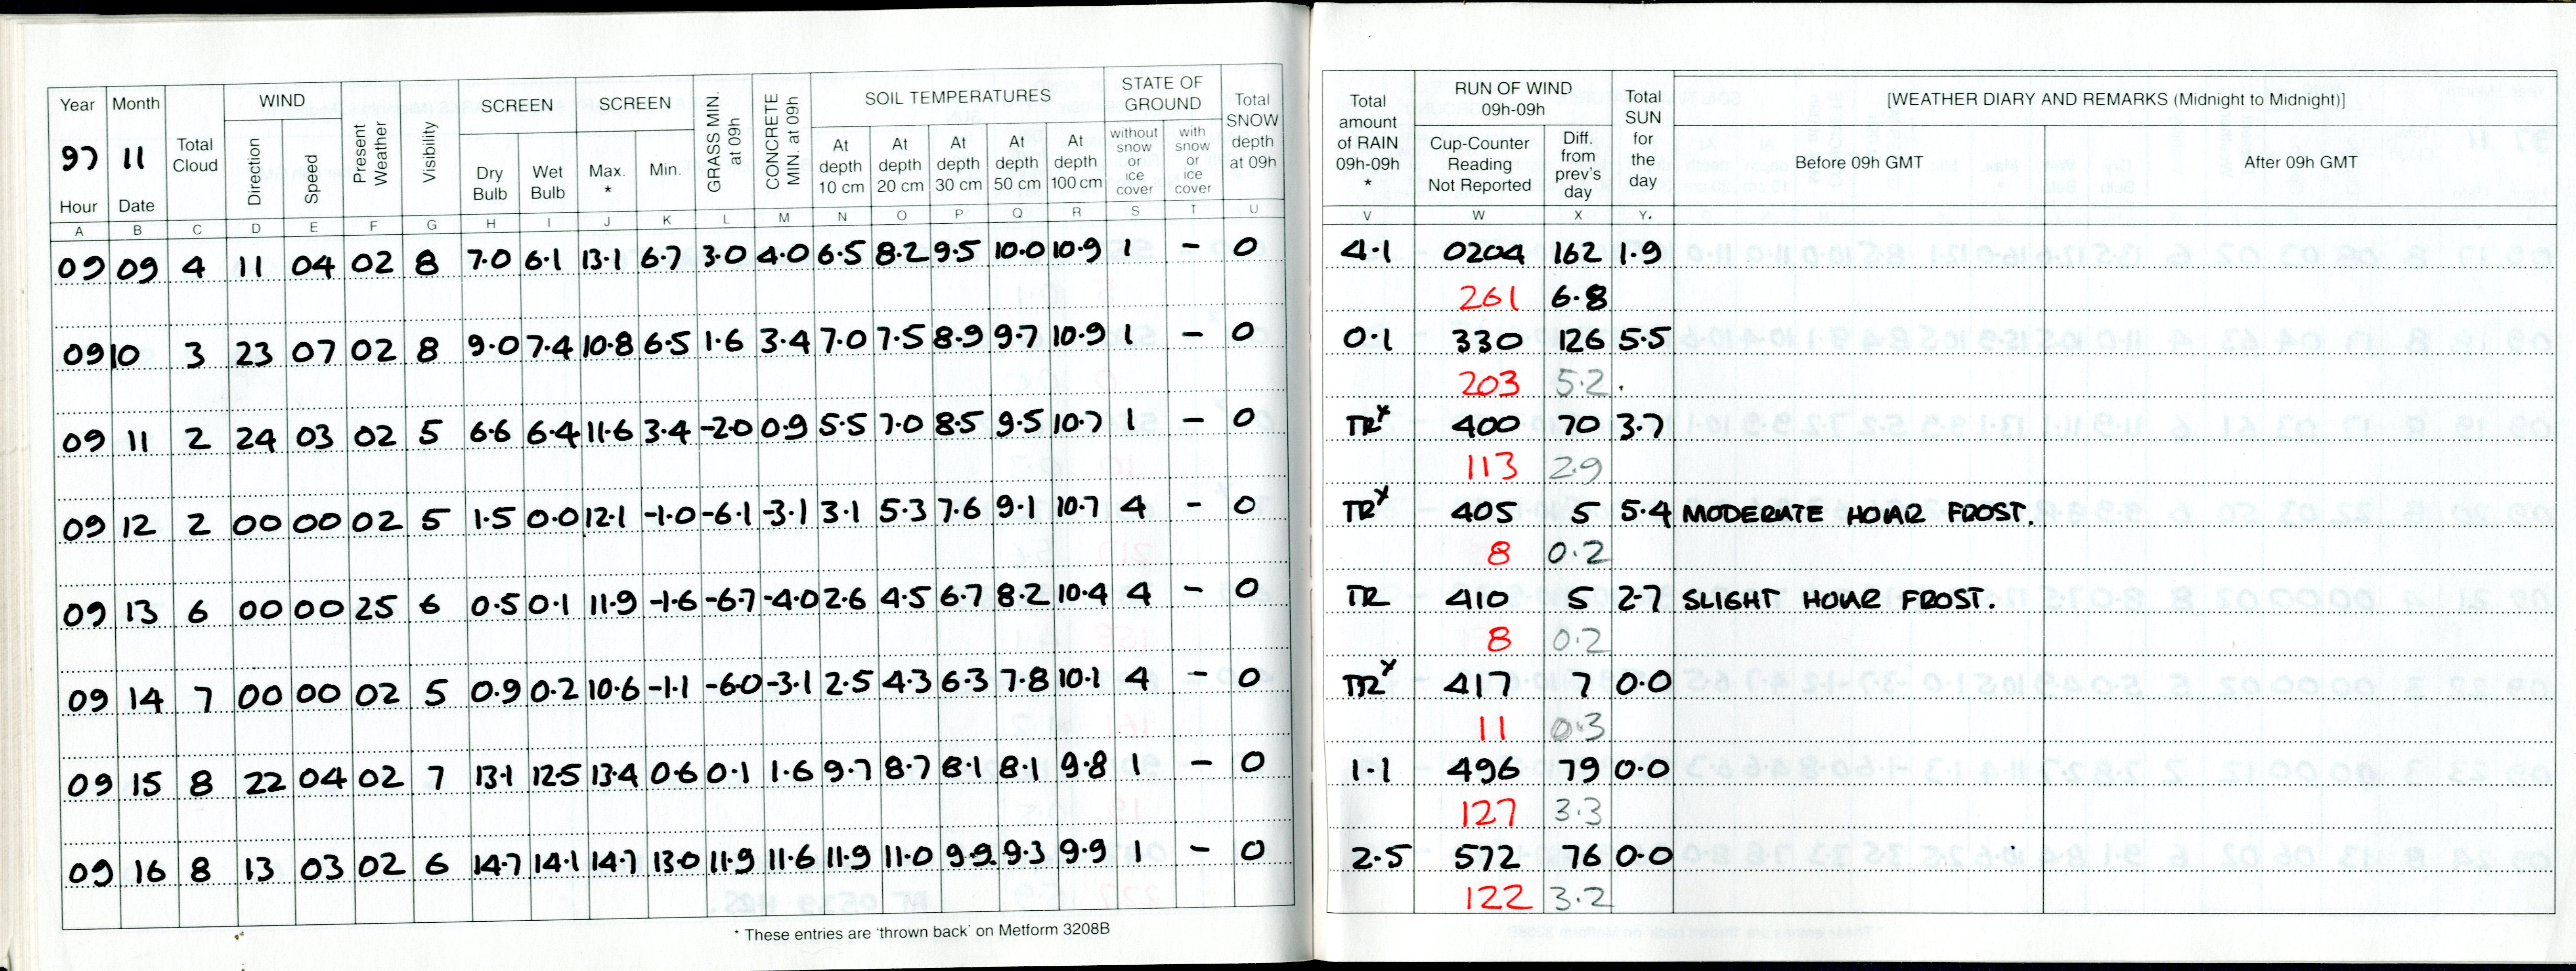 Year Month WIND SCREEN SCREEN SOIL TEMPERATURES STATE OF GROUND Total SNOW depth at 09h
97 11 Total Cloud Direction Speed Present Weather Visibility Dry Bulb Wet Bulb Max. * Min. GRASS MIN. at 09h CONCRETE MIN. at 09h At depth 10 cm At depth 20 cm At depth 30 cm At depth 50 cm At depth 100 cm without snow or ice cover with snow or ice cover
Hour Date
A B C D E F G H I J K L M N O P Q R S T U
09 09 4 11 04 02 8 7.0 6.1 13.1 6.7 3.0 4.0 6.5 8.2 9.5 10.0 10.9 1 - 0
09 10 3 23 07 02 8 9.0 7.4 10.8 6.5 1.6 3.4 7.0 7.5 8.9 9.7 10.9 1 - 0
09 11 2 24 03 02 5 6.6 6.4 11.6 3.4 -2.0 0.9 5.5 7.0 8.5 9.5 10.7 1 - 0
09 12 2 00 00 02 5 1.5 0.0 12.1 -1.0 -6.1 -3.1 3.1 5.3 7.6 9.1 10.7 4 - 0
09 13 6 00 00 25 6 0.5 0.1 11.9 -1.6 -6.7 -4.0 2.6 4.5 6.7 8.2 10.4 4 - 0
09 14 7 00 00 02 5 0.9 0.2 10.6 -1.1 -6.0 -3.1 2.5 4.3 6.3 7.8 10.1 4 - 0
09 15 8 22 04 02 7 13.1 12.5 13.4 0.6 0.1 1.6 9.7 8.7 8.1 8.1 9.8 1 - 0
09 16 8 13 03 02 6 14.7 14.1 14.7 13.0 11.9 11.6 11.9 11.0 9.9 9.3 9.9 1 - 0
* These entries are 'thrown back' on Metform 3208B
Total amount of RAIN 09h-09h * RUN OF WIND 09h-09h Total SUN for the day [WEATHER DIARY AND REMARKS (Midnight to Midnight)]
Cup-Counter Reading Not Reported Diff. from prev's day Before 09h GMT After 09h GMT
V W X Y.
4.1 0204 162 1.9
261 6.8
0.1 330 126 5.5
203 5.2
TR x 400 70 3.7
113 2.9
TR x 405 5 5.4 MODERATE HOAR FROST.
8 0.2
TR 410 5 2.7 SLIGHT HOAR FROST.
8 0.2
TR x 417 7 0.0
11 0.3
1.1 496 79 0.0
127 3.3
2.5 572 76 0.0
122 3.2